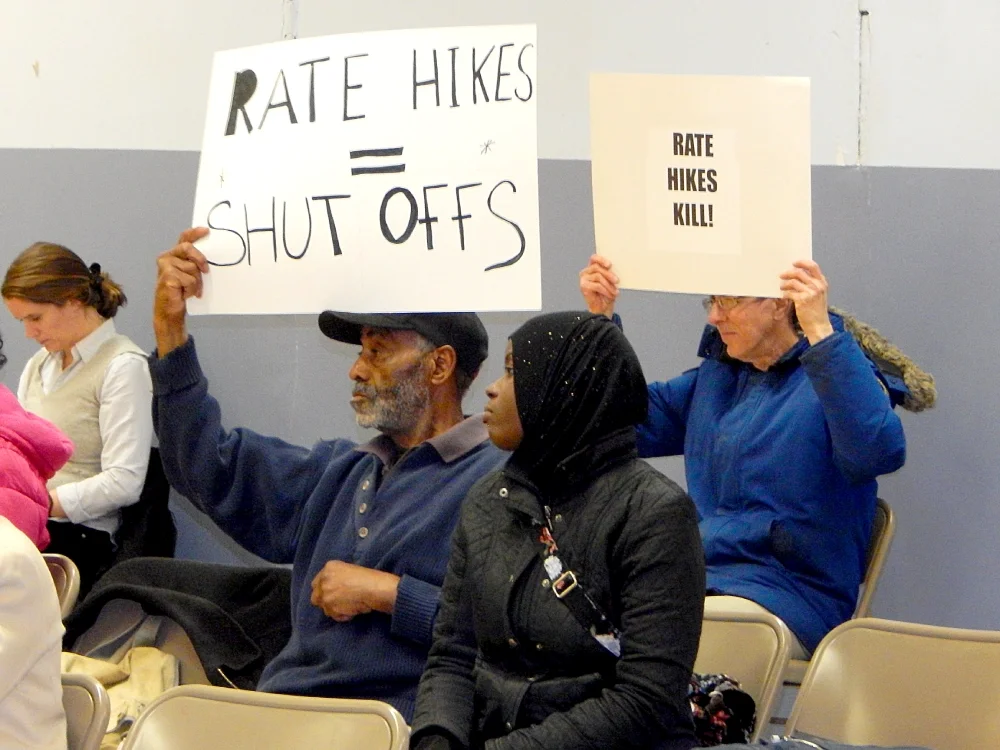 RATE HIKES
=
SHUT OFFS
RATE
HIKES
KILL!